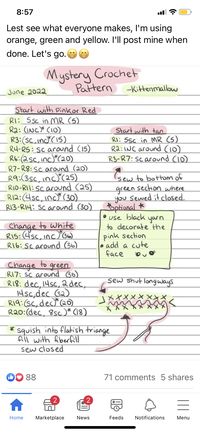 8:57
Lest see what everyone makes, I'm using
orange, green and yellow. I'll post mine when
done. Let's go.
Mystery Crochet
June 2022 Pattern -Kittenmallow
Start with Pink or Red
R1: 5sc in MR (5)
R2: (inc)* (10)
R3: (sc, inc)* (15)
R4-R5: sc around (15)
R6: (2sc, inc)* (20)
R7-R8: sc around (20)
R9: (3sc, inc)* (25)
R10-R11: sc around (25)
R12: (4sc, inc)* (30)
R13-R14: sc around (30)
Change to white
R15: (4sc, inc)* (36)
R16: sc around (36)
Change to green
R17: sc around (36)
R18: dec, 14sc, 2dec,
14sc, dec (32)
R19: (sc, dec)*
R20: (dec, 8sc)* (18)
* squish into flatish triange
fill with fiberfill
sew closed
Start with tan
R1: 5sc in MR (5)
R2: inc around (10)
R3-R7: sc around (10)
sew to bottom of
green section where
you sewed it closed.
*optional*
• use black yarn
to decorate the
pink section
• add a cute
face
Sew shut longways
88 71 comments 5 shares
2 2
Home Marketplace News Feeds Notifications Menu